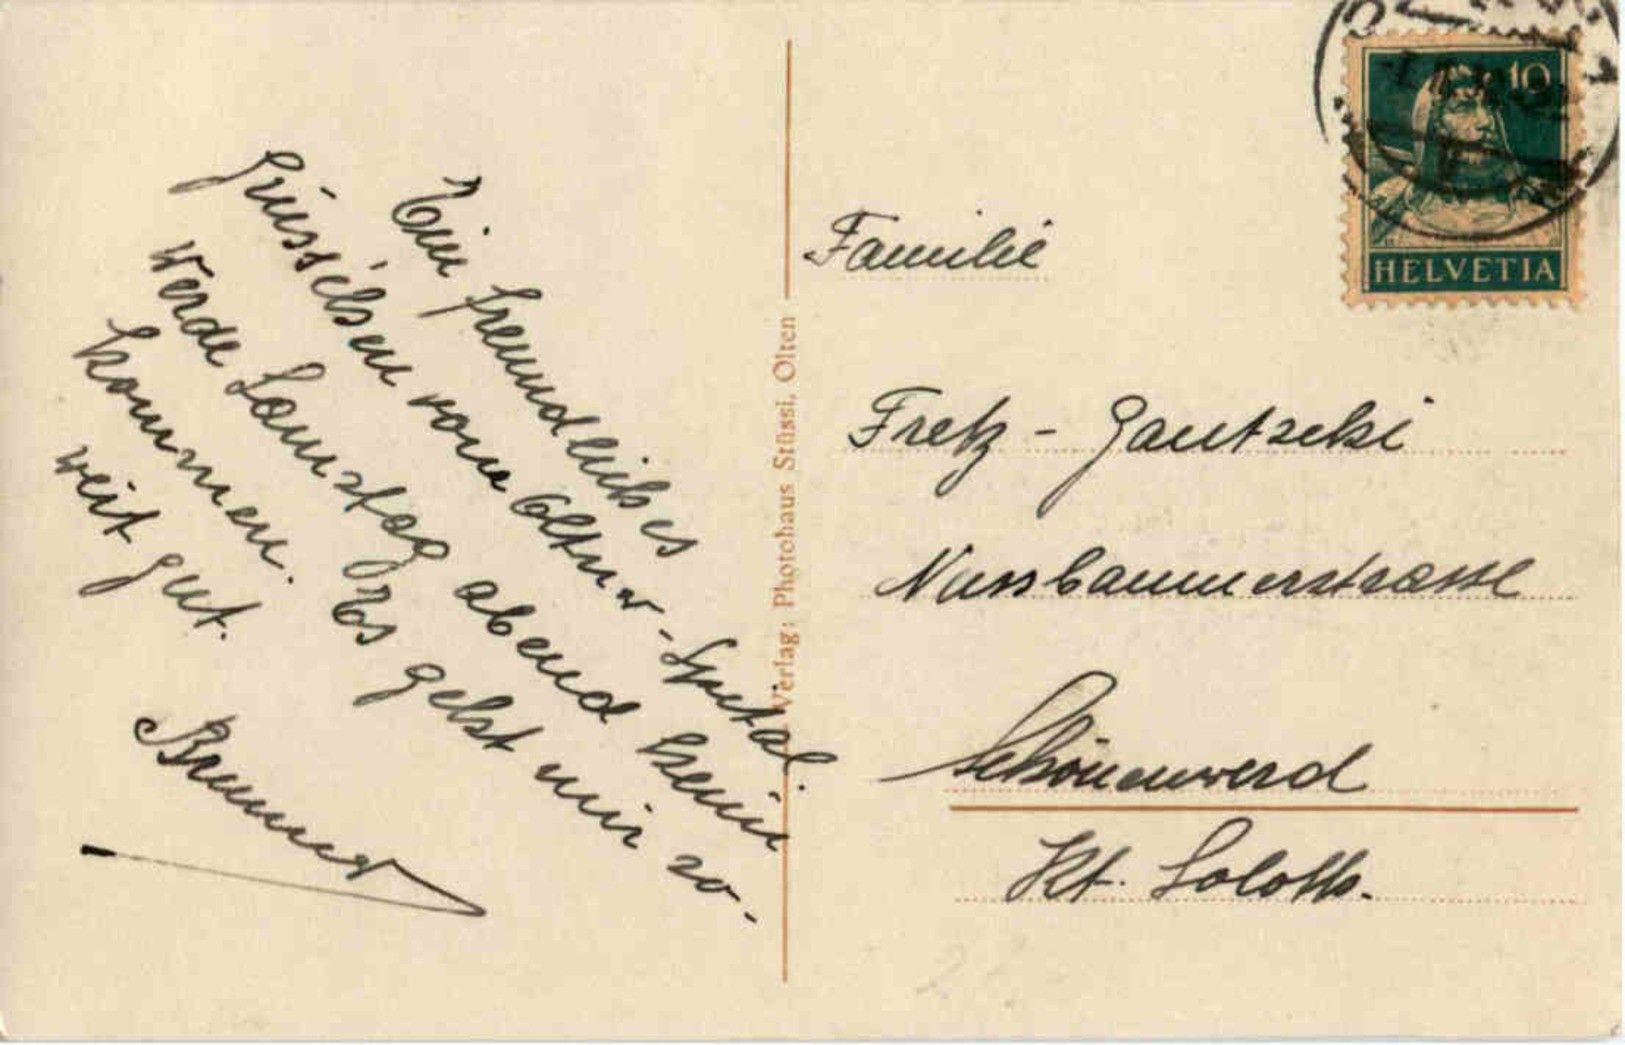 Ein freundliches
Grüsschen vom Oltner-Spital.
Werde Samstag abend heim
kommen. Es geht mir so-
weit gut.
Brunner
Verlag: Photohaus Stüssi, Olten
10
HELVETIA
Familie
Fretz - Gautschi
Nussbaumerstrasse
Schönenwerd
Kt. Soloth.